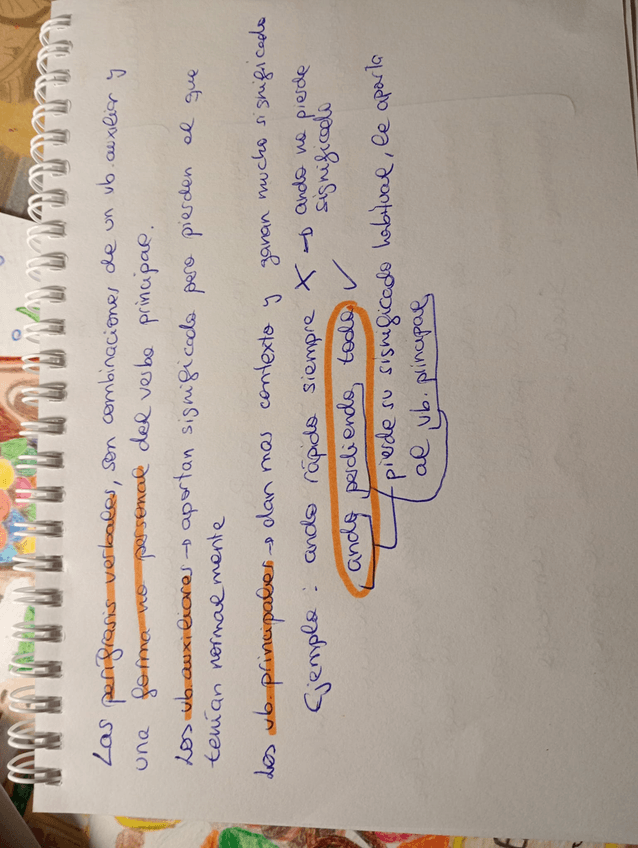 Las perífrasis verbales, son combinaciones de un vb. auxiliar y
una forma no personal del verbo principal.
Los vb. auxiliares → aportan significado pero pierden el que
tenían normalmente
Los vb. principales → dan mas contexto y ganan mucho significado
Ejemplo: ando rápido siempre X → ando no pierde
significado
ando perdiendo todo ✓
pierde su significado habitual, le aporta
al vb. principal